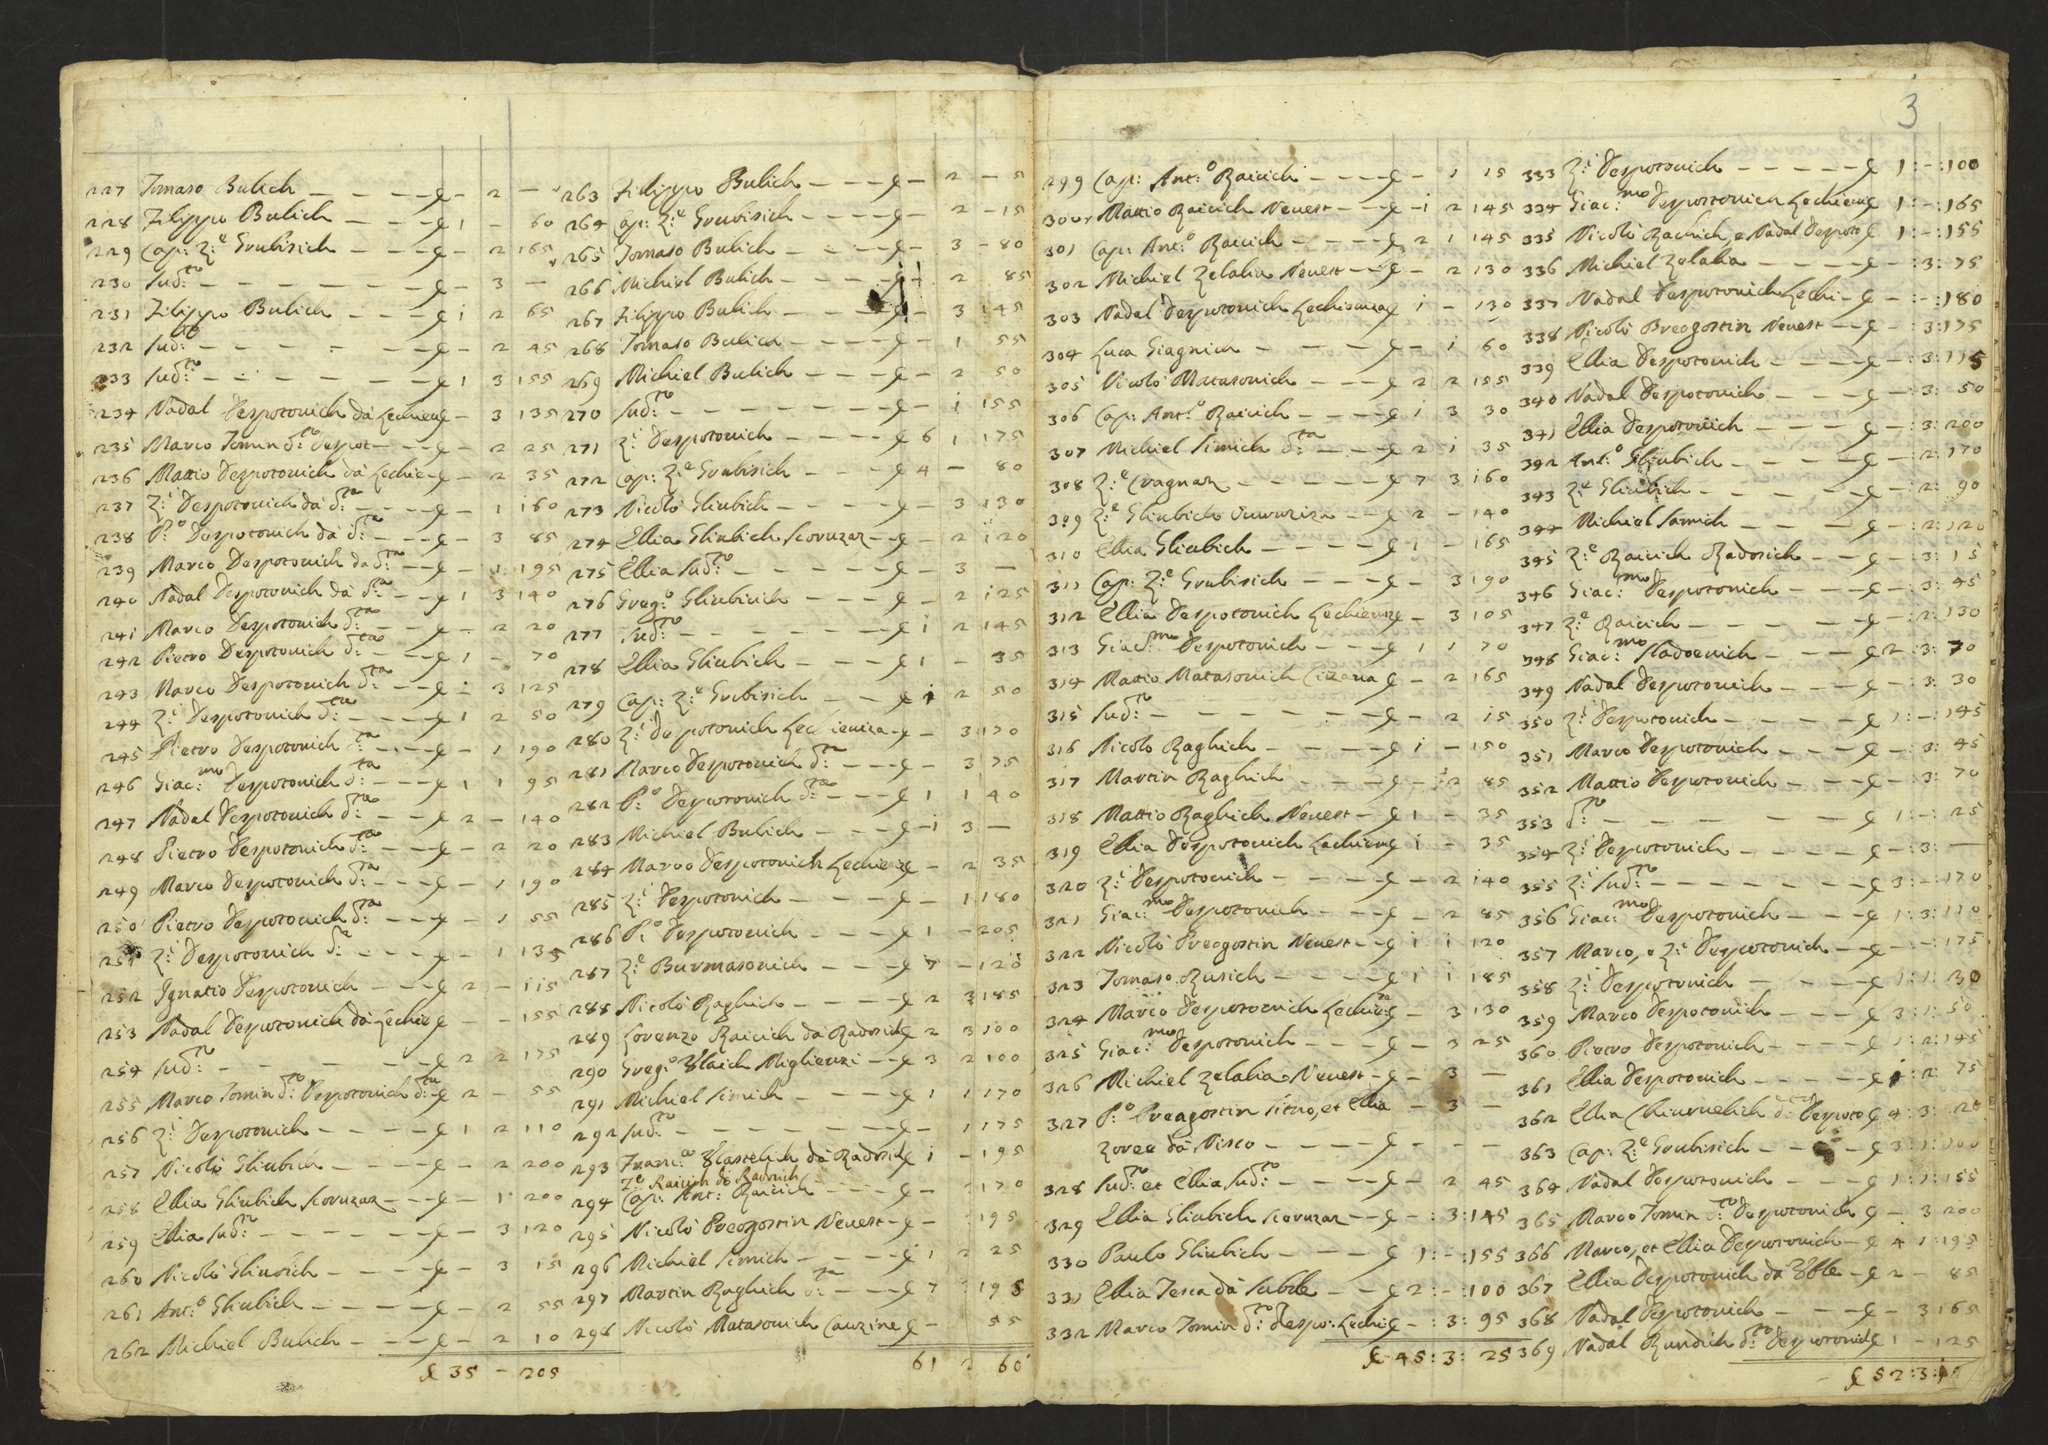 3
227 Tomaso Bulich - - - - - £ - 2 -
228 Filippo Bulich - - - - £ 1 - 60
229 Cap: Z:e Grubisich - - - £ - 2 165
230 sud:to - - - - - - - £ - 3 -
231 Filippo Bulich - - - - £ 1 2 65
232 sud:to - - - - - - - £ - 2 45
233 sud:to - - - - - - - £ 1 3 155
234 Nadal Despotovich da Lechieu£ - 3 135
235 Marco Tomin d:to Despot - - - £ - 2 25
236 Mattio Despotovich da Lechie - £ - 2 35
237 Z:i Despotovich da d:ta - - - - £ - 1 160
238 P:o Despotovich da d:ta - - - £ - 3 85
239 Marco Despotovich da d:ta - - £ - 1 195
240 Nadal Despotovich da d:ta - - £ 1 3 140
241 Marco Despotovich d:ta - - - £ - 2 20
242 Pietro Despotovich d:ta - - - £ 1 - 70
243 Marco Despotovich d:ta - - £ - 3 125
244 Z:i Despotovich d:ta - - - - £ 1 2 50
245 Pietro Despotovich d:ta - - - £ - 1 190
246 Giac:mo Despotovich d:ta - - - £ 1 1 95
247 Nadal Despotovich d:ta - - - £ 2 - 140
248 Pietro Despotovich d:ta - - - £ - 2 20
249 Marco Despotovich d:ta - - - £ - 1 190
250 Pietro Despotovich d:ta - - - £ - 1 55
251 Z:i Despotovich d:ta - - - £ - 1 135
252 Ignatio Despotovich - - - - £ 2 - 115
253 Nadal Despotovich da Lechie £ - - 155
254 sud:to - - - - - - - £ 2 2 175
255 Marco Tomin d:to Despotovich d:ta £ 2 - 55
256 Z:i Despotovich - - - - - £ 1 2 110
257 Nicolò Gliubich - - - - - £ - 2 200
258 Ellia Gliubich scoruzar - - - £ - 1 200
259 Ellia sud:to - - - - - - £ - 3 120
260 Nicolò Gliubich - - - - £ - 3 15
261 Ant:o Gliubich - - - - - £ - 2 55
262 Michiel Bulich - - - - £ - 2 10
£ 35 - 205
263 Filippo Bulich - - - - £ - 2 - 5
264 Cap: Z:e Grubisich - - - - £ - 2 - 15
265 Tomaso Bulich - - - - - £ - 3 - 80
266 Michiel Bulich - - - - - £ - 2 85
267 Filippo Bulich - - - - - £ - 3 145
268 Tomaso Bulich - - - - - £ - 1 55
269 Michiel Bulich - - - - £ - 2 50
270 sud:to - - - - - - - £ - 1 155
271 Z:i Despotovich - - - - £ 6 1 175
272 Cap: Z:e Grubisich - - - - £ 4 - 80
273 Nicolò Gliubich - - - - £ - 3 130
274 Ellia Gliubich scoruzar - - £ - 2 120
275 Ellia sud:to - - - - - - £ - 3 -
276 Greg:o Gliubicich - - - - £ - 2 125
277 sud:to - - - - - - - £ 1 2 145
278 Ellia Gliubich - - - - £ 1 - 35
279 Cap: Z:e Grubisich - - - £ 1 2 50
280 Z:i Despotovich Lechieuiza - £ - 3 170
281 Marco Despotovich d:ta - - - £ - 3 75
282 P:o Despotovich d:ta - - - £ 1 1 40
283 Michiel Bulich - - - - £ 1 3 -
284 Marco Despotovich Lechieui£ - 2 35
285 Z:i Despotovich - - - - £ - 1 180
286 P:o Despotovich - - - - £ 1 - 205
287 Z:e Burmasovich - - - - £ 7 - 120
288 Nicolò Raghich - - - - - £ 2 3 185
289 Lorenzo Raicich da Radosich£ 2 3 100
290 Greg:o Vlaich Miglienzi - - £ 3 2 100
291 Michiel Simich - - - - - £ 1 1 170
292 sud:to - - - - - - - £ - 1 175
293 Franc:o Vlastelich da Radosich£ 1 - 195
Z:e Raicich di Radosich
294 Cap: Ant: Raicich - - - - £ - - 170
295 Nicolò Preogostin Nevest - £ - - 195
296 Michiel Simich - - - - £ 1 2 25
297 Martin Raghich d:ta - - - £ 7 195
298 Nicolò Matasovich Cauzine £ - 55
61 2 60
299 Cap: Ant:o Raicich - - - - £ - 1 15
300 Mattio Raicich Nevest - - - £ - 1 2 145
301 Cap: Ant:o Raicich - - - - £ 2 1 145
302 Michiel Zelalia Nevest - - £ - 2 130
303 Nadal Despotovich Lechieuiza£ 1 - 130
304 Luca Giagnich - - - - - £ - 1 60
305 Nicolò Matasovich - - - - £ 2 2 155
306 Cap: Ant:o Raicich - - - - £ 1 3 30
307 Michiel Simich d:ta - - - £ 2 1 35
308 Z:e Cvagnaz - - - - - - £ 7 3 160
309 Z:e Gliubich Cuvuriza - - £ 2 - 140
310 Ellia Gliubich - - - - - £ 1 - 165
311 Cap: Z:e Grubisich - - - - £ - 3 190
312 Ellia Despotovich Lechieuiz£ - 3 105
313 Giac:mo Despotovich - - - - £ 1 1 70
314 Mattio Matasovich Cizana £ - 2 165
315 sud:to - - - - - - - £ - 2 15
316 Nicolò Raghich - - - - - £ 1 - 150
317 Martin Raghich - - - - - £ - 2 85
318 Mattio Raghich Nevest - £ 1 - 35
319 Ellia Despotovich Lechieu£ 1 - 35
320 Z:i Despotovich - - - - - £ - 2 140
321 Giac:mo Despotovich - - - - £ - 2 85
322 Nicolò Preogostin Nevest - - £ 1 1 120
323 Tomaso Rusich - - - - - £ 1 1 185
324 Marco Despotovich Lechieu:za£ - 3 130
325 Giac:mo Despotovich - - - - £ - 3 25
326 Michiel Zelalia Nevest - £ - 3 -
327 P:o Preagostin sitno, et Ellia - 3 -
Zovea da Nisco - - - - £ - - -
328 sud:to et Ellia sud:to - - - - £ - 2 45
329 Ellia Gliubich scoruzar - - £ - : 3 : 145
330 Paulo Gliubich - - - - £ 1 : - : 155
331 Ellia Tesca da Sutte - - £ 2 : - : 100
332 Marco Tomin d:to Despo: Lechi£ - : 3 : 95
£ 45 : 3 : 25
333 Z:i Despotovich - - - - - £ 1 : - : 100
334 Giac:mo Despotovich Lechieu£ 1 : - : 165
335 Nicolò Rachich, e Nadal Despoto£ 1 : - : 155
336 Michiel Zelalia - - - - - £ - : 3 : 75
337 Nadal Despotovich Lechi - £ - : - : 180
338 Nicolò Preogostin Nevest - - £ - : 3 : 175
339 Ellia Despotovich - - - - - £ - : 3 : 115
340 Nadal Despotovich - - - - £ - : 3 : 50
341 Ellia Despotovich - - - - £ - : 3 : 200
342 Ant:o Gliubich - - - - - £ - : 2 : 170
343 Z:e Gliubich - - - - - - £ - : 2 : 90
344 Michiel Samich - - - - £ - : 2 : 120
345 Z:e Raicich Radosich - - - £ - : 3 : 15
346 Giac:mo Despotovich - - - - £ - : 3 : 45
347 Z:e Raicich - - - - - - £ - : 2 : 130
348 Giac:mo Radoevich - - - - £ 2 : 3 : 70
349 Nadal Despotovich - - - - £ - : 3 : 30
350 Z:i Despotovich - - - - - £ 1 : - : 145
351 Marco Despotovich - - - - £ - : 3 : 45
352 Mattio Despotovich - - - - £ - : 3 : 70
353 d:to - - - - - - - - £ 1 : - : 25
354 Z:i Despotovich - - - - - £ - : 3 : -
355 Z:i sud:to - - - - - - - £ 3 : - : 170
356 Giac:mo Despotovich - - - £ 1 : 3 : 110
357 Marco, e Z:i Despotovich - - £ - : - : 175
358 Z:i Despotovich - - - - £ 1 : 1 : 30
359 Marco Despotovich - - - £ 3 : 1 : 50
360 Pietro Despotovich - - - - £ 1 : 2 : 145
361 Ellia Despotovich - - - - - £ 1 : 2 : 75
362 Ellia Chiurnelich d:to Despoto £ 4 : 3 : 20
363 Cap: Z:e Grubisich - - - £ 3 : 1 : 100
364 Nadal Despotovich - - - - £ 1 : 1 : 155
365 Marco Tomin d:to Despotovich £ - 3 200
366 Marco, et Ellia Despotovich - £ 4 1 : 195
367 Ellia Despotovich da Vble - £ 2 - 85
368 Nadal Despotovich - - - - £ - 3 165
369 Nadal Rundich d:to Despotovich£ 1 - 125
£ 52 : 3 :